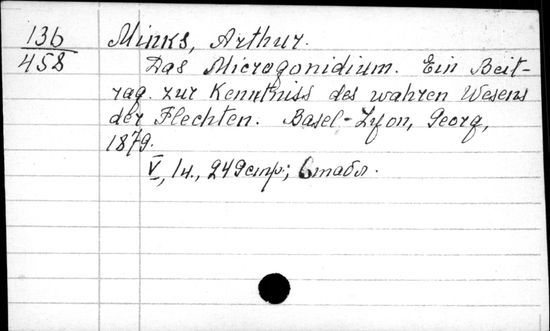 13b
458
Minks, Arthur.
Das Microgonidium. Ein Beit-
rag. zur Kenntniss des wahren Wesens
der Flechten. Basel-Lyon, Georg,
1879.
V, 1н., 249стр; 6табл.